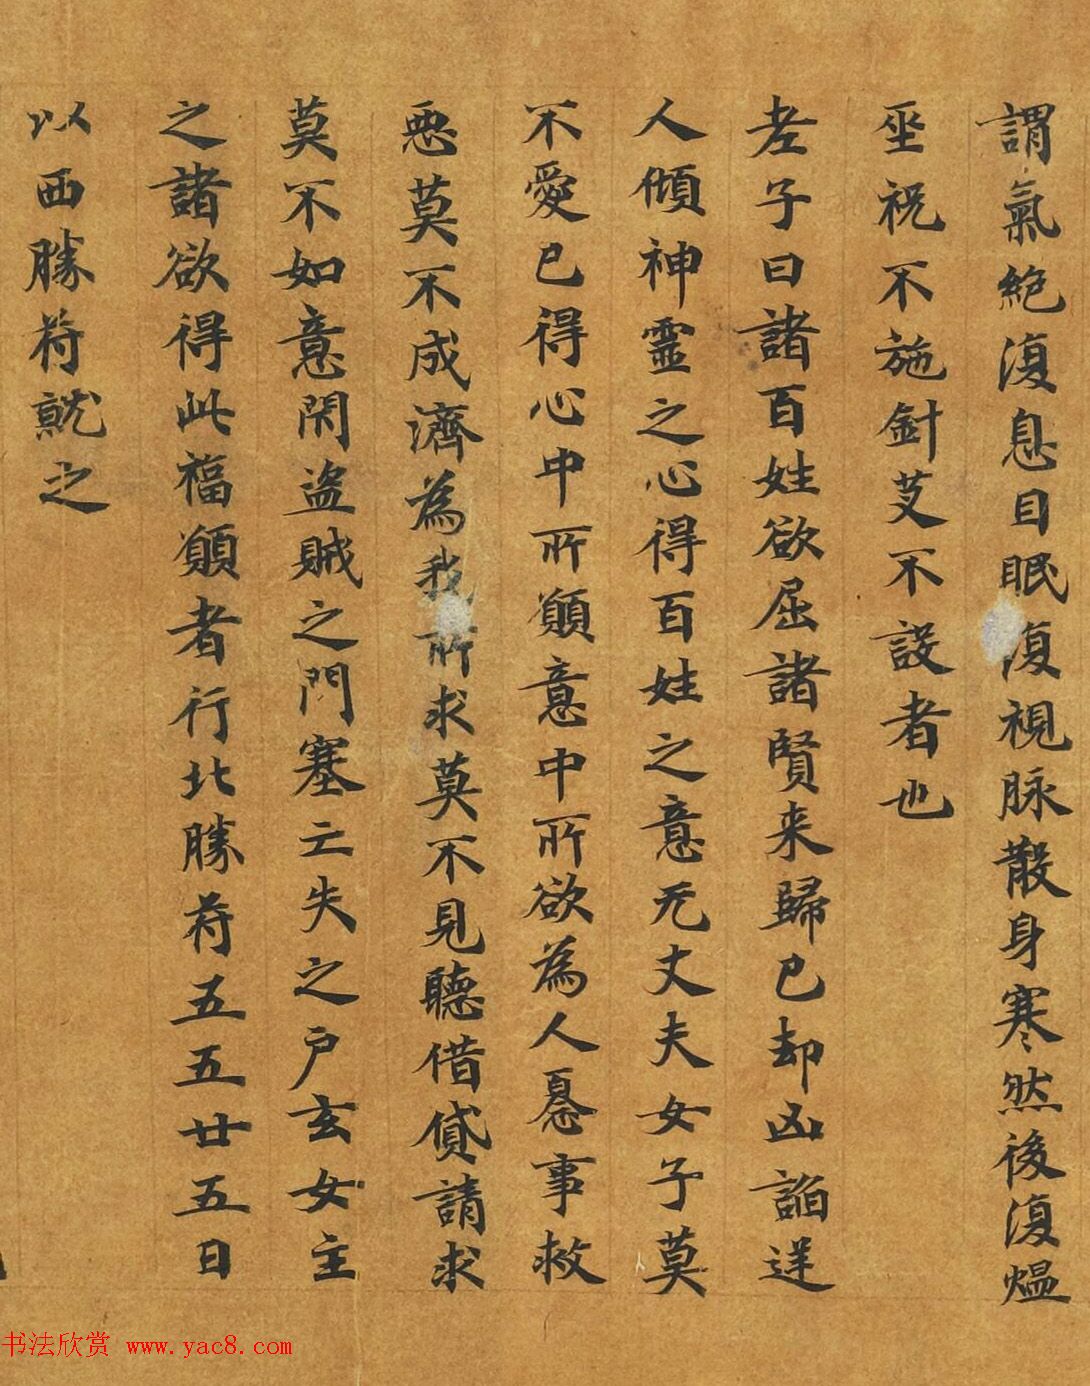 謂氣絶復息目眠復視脉散身寒然後復煴
巫祝不施針艾不設者也
老子曰諸百姓欲屈諸賢来歸已却凶諂逆
人傾神靈之心得百姓之意无丈夫女子莫
不愛已得心中所願意中所欲為人憂事救
惡莫不成濟為我所求莫不見聽借貸請求
莫不如意閇盗賊之門塞亡失之户玄女主
之諸欲得此福願者行北勝符五五廿五日
以西勝符就之
书法欣赏 www.yac8.com